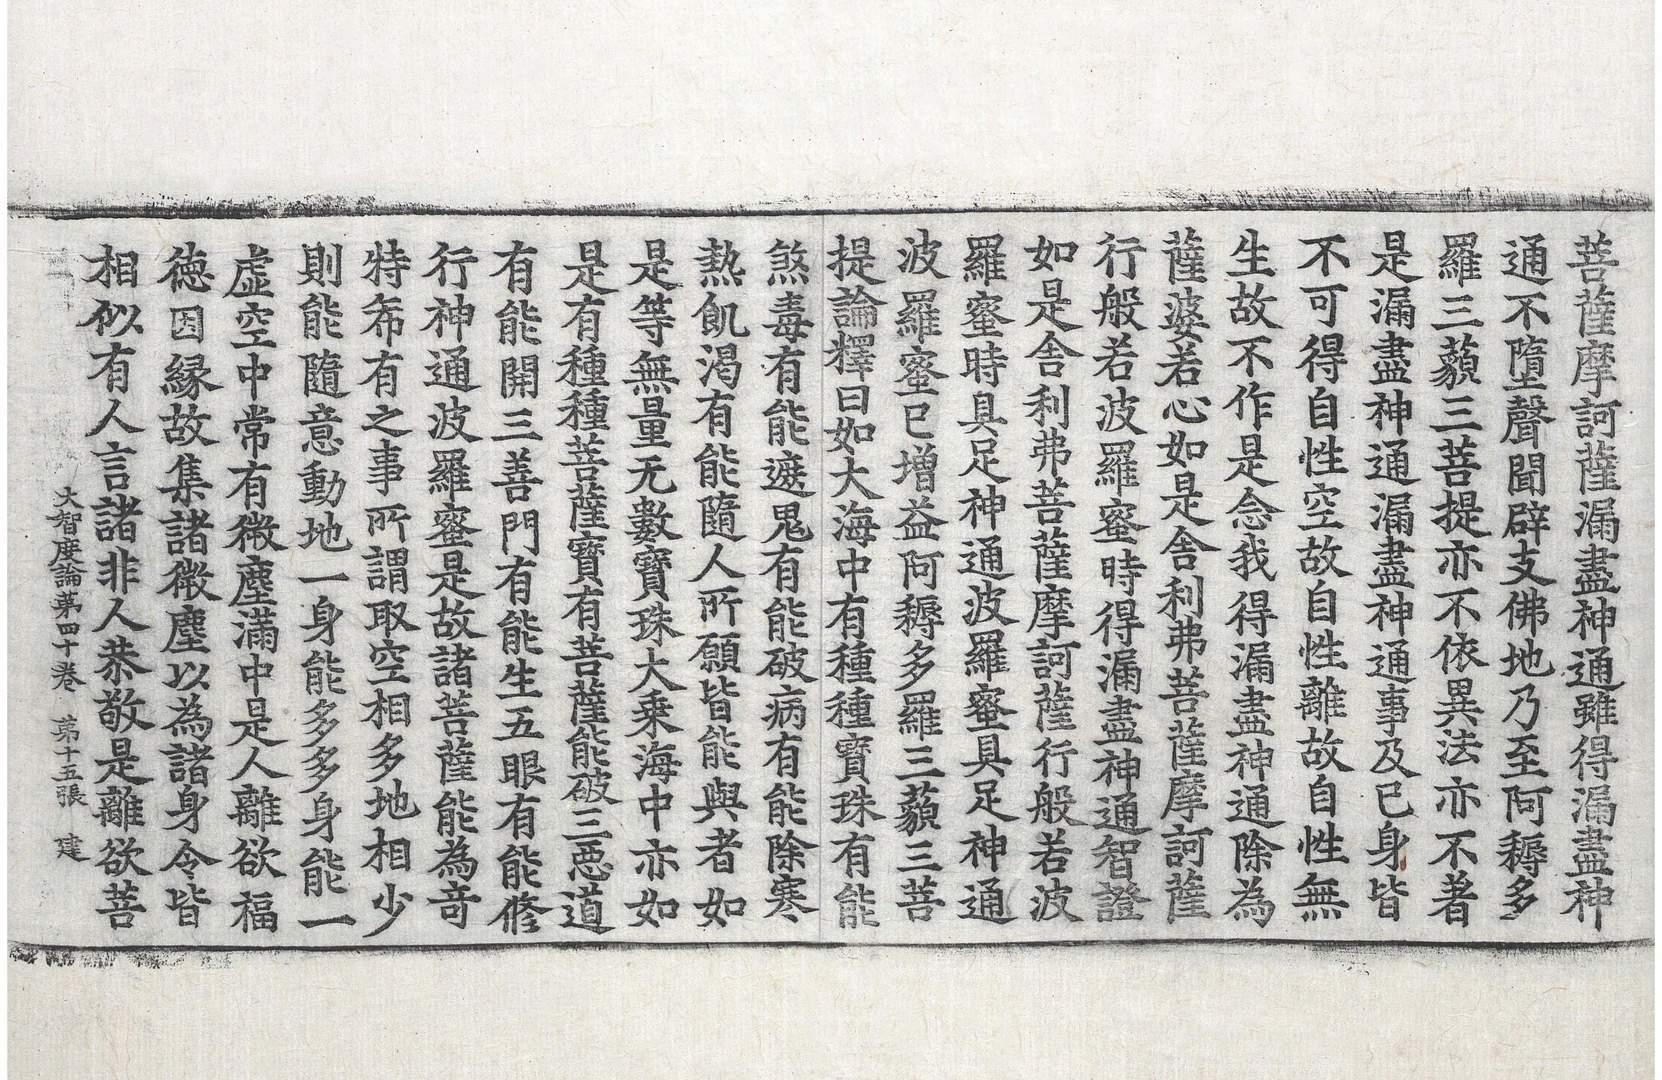 菩薩摩訶薩漏盡神通雖得漏盡神
通不墮聲聞辟支佛地乃至阿耨多
羅三藐三菩提亦不依異法亦不著
是漏盡神通漏盡神通事及已身皆
不可得自性空故自性離故自性無
生故不作是念我得漏盡神通除為
薩婆若心如是舍利弗菩薩摩訶薩
行般若波羅蜜時得漏盡神通智證
如是舍利弗菩薩摩訶薩行般若波
羅蜜時具足神通波羅蜜具足神通
波羅蜜已增益阿耨多羅三藐三菩
提論釋曰如大海中有種種寶珠有能
煞毒有能遮鬼有能破病有能除寒
熱飢渴有能隨人所願皆能與者如
是等無量无數寶珠大乘海中亦如
是有種種菩薩寶有菩薩能破三惡道
有能開三善門有能生五眼有能修
行神通波羅蜜是故諸菩薩能為奇
特希有之事所謂取空相多地相少
則能隨意動地一身能多多身能一
虛空中常有微塵滿中是人離欲福
德因緣故集諸微塵以為諸身令皆
相似有人言諸非人恭敬是離欲菩
大智度論第四十卷 第十五張 建